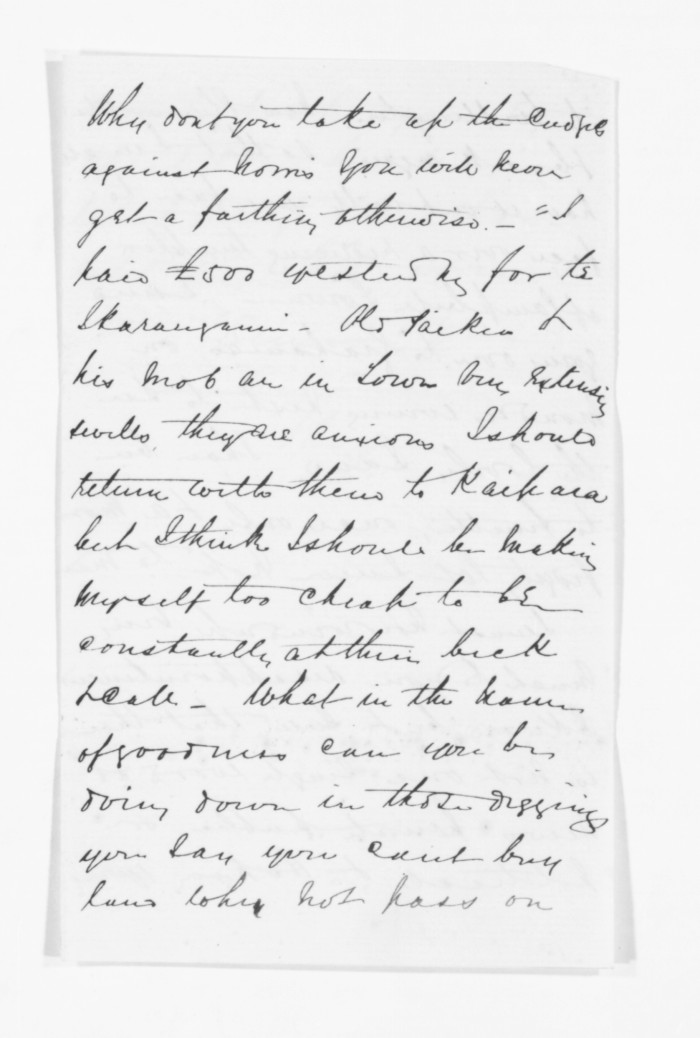 Why dont you take up the Cudgels
against Norris You will never
get a farthing otherwise. — "I
paid £500 yesterday for te
Ikarangamui — Old Parker &
his mob are in Town very Extensive
swells, they are anxious I should
return with them to Raikara
but I think I should be making
myself too cheap to be
constantly at their beck
& call — What in the name
of goodness can you be
doing down in those diggings
you say you cant buy
land why not pass on